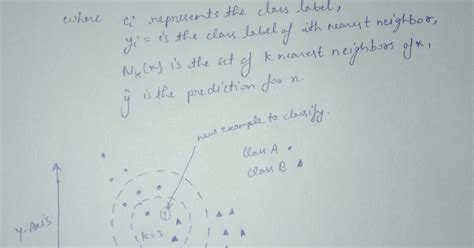 where ci represents the class label,
yi = is the class label of ith nearest neighbor,
Nk(x) is the set of k nearest neighbors of x,
ŷ is the prediction for x.
new example to classify.
class A
class B
Y-Axis
?
k=3